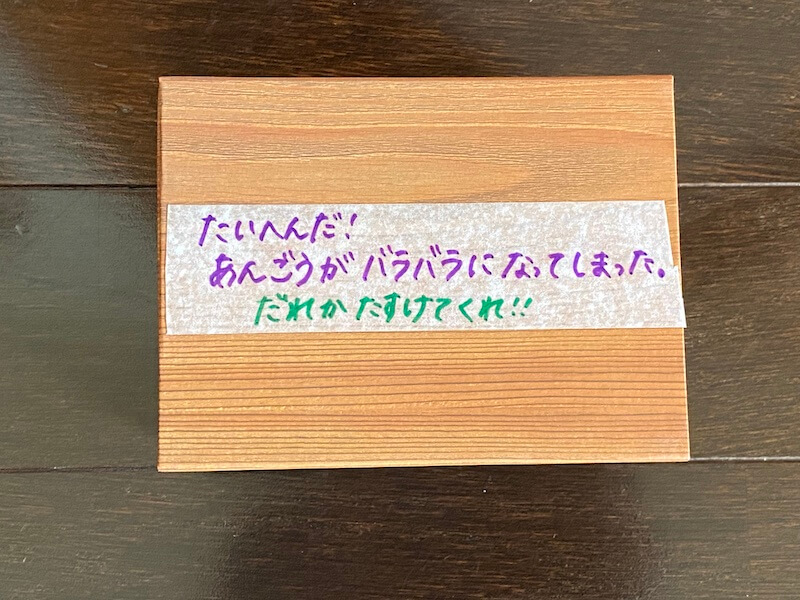 たいへんだ!
あんごうがバラバラになってしまった。
だれかたすけてくれ!!